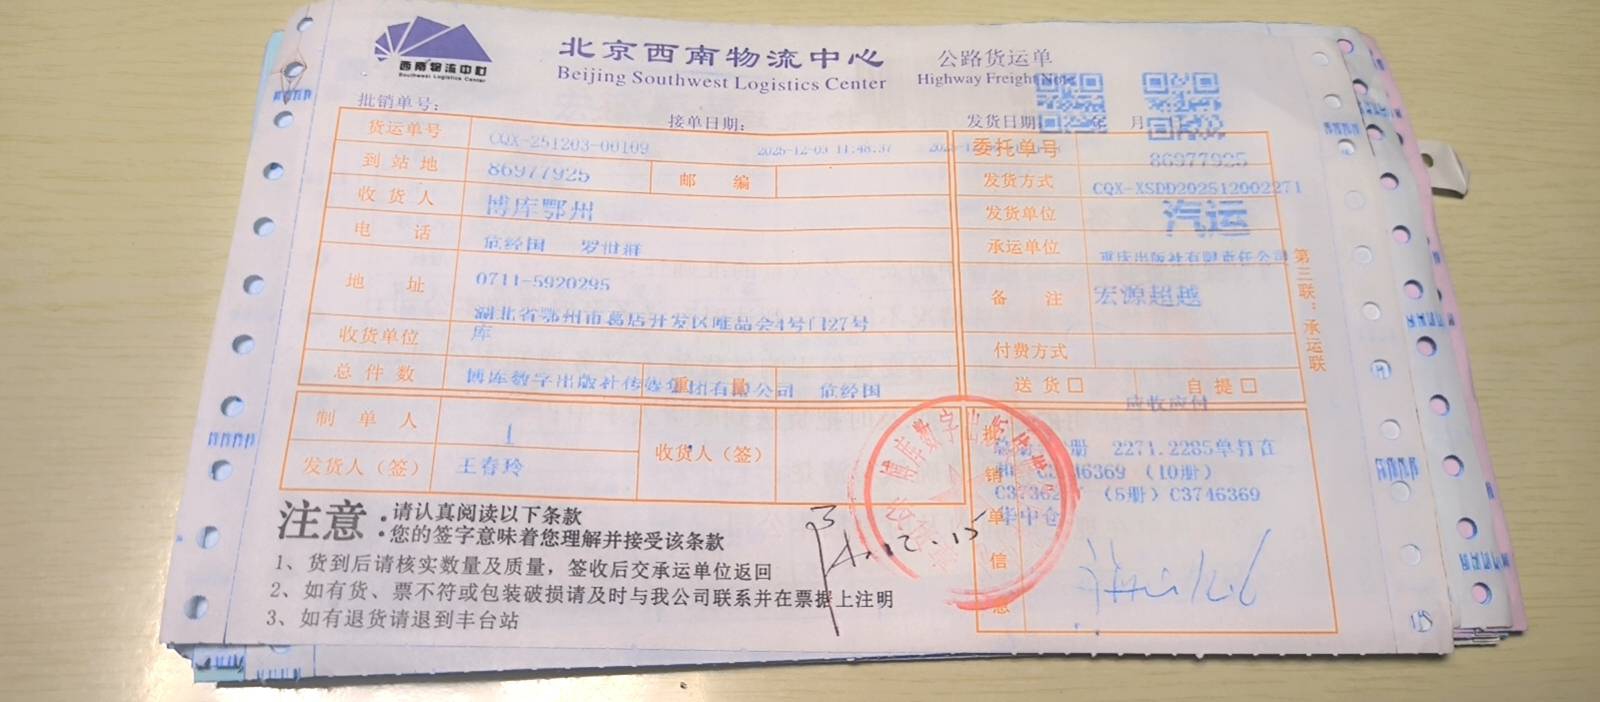 西南物流中心
Southwest Logistics Center
北京西南物流中心
Beijing Southwest Logistics Center
公路货运单
Highway Freight Note
批销单号:
接单日期:
发货日期: 年 月
货运单号 CQX-251203-00109 2025-12-03 11:48:37
委托单号 86977925
到站地 86977925 邮编
发货方式 CQX-XSDD202512002271
收货人 博库鄂州
发货单位 汽运
电话 范经国 罗世祥
承运单位 重庆出版社有限责任公司
地址 0711-5920295
湖北省鄂州市葛店开发区唯品会4号门27号
库
备注 宏源超越
收货单位
付费方式
总件数 博库数字出版社传媒集团有限公司 范经国
重量
送货□ 自提□
应收应付
制单人 1
收货人（签）
发货人（签） 王春玲
批销单信息
册 2271.2285单打在
6369 (10册)
(5册) C3746369
华中仓
第三联：承运联
注意:
请认真阅读以下条款
您的签字意味着您理解并接受该条款
1、货到后请核实数量及质量，签收后交承运单位返回
2、如有货、票不符或包装破损请及时与我公司联系并在票据上注明
3、如有退货请退到丰台站
12.15